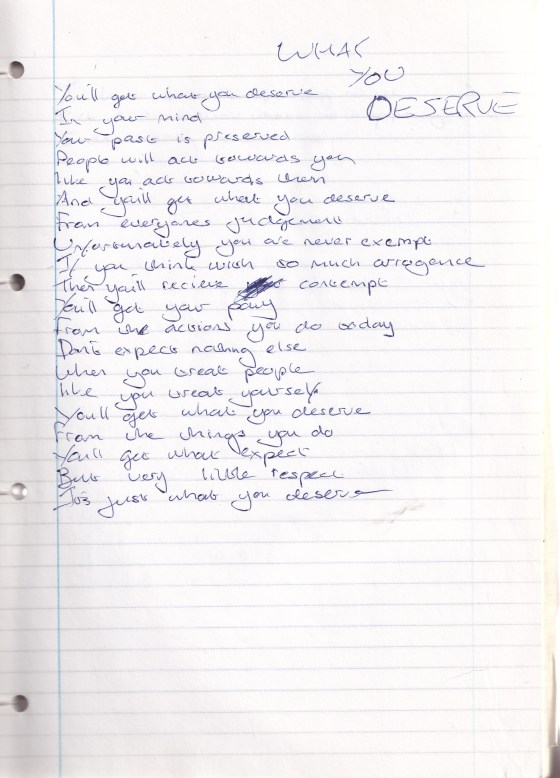 WHAT
YOU
DESERVE
You'll get what you deserve
In your mind
Your past is preserved
People will act towards you
like you act towards them
And you'll get what you deserve
From everyones judgement
Unfortunately you are never exempt
If you think with so much arrogence
Then you'll recieve contempt
You'll get your pay
From the actions you do today
Don't expect nothing else
When you treat people
like you treat yourself
You'll get what you deserve
From the things you do
You'll get what expect
But very little respect
It's just what you deserve